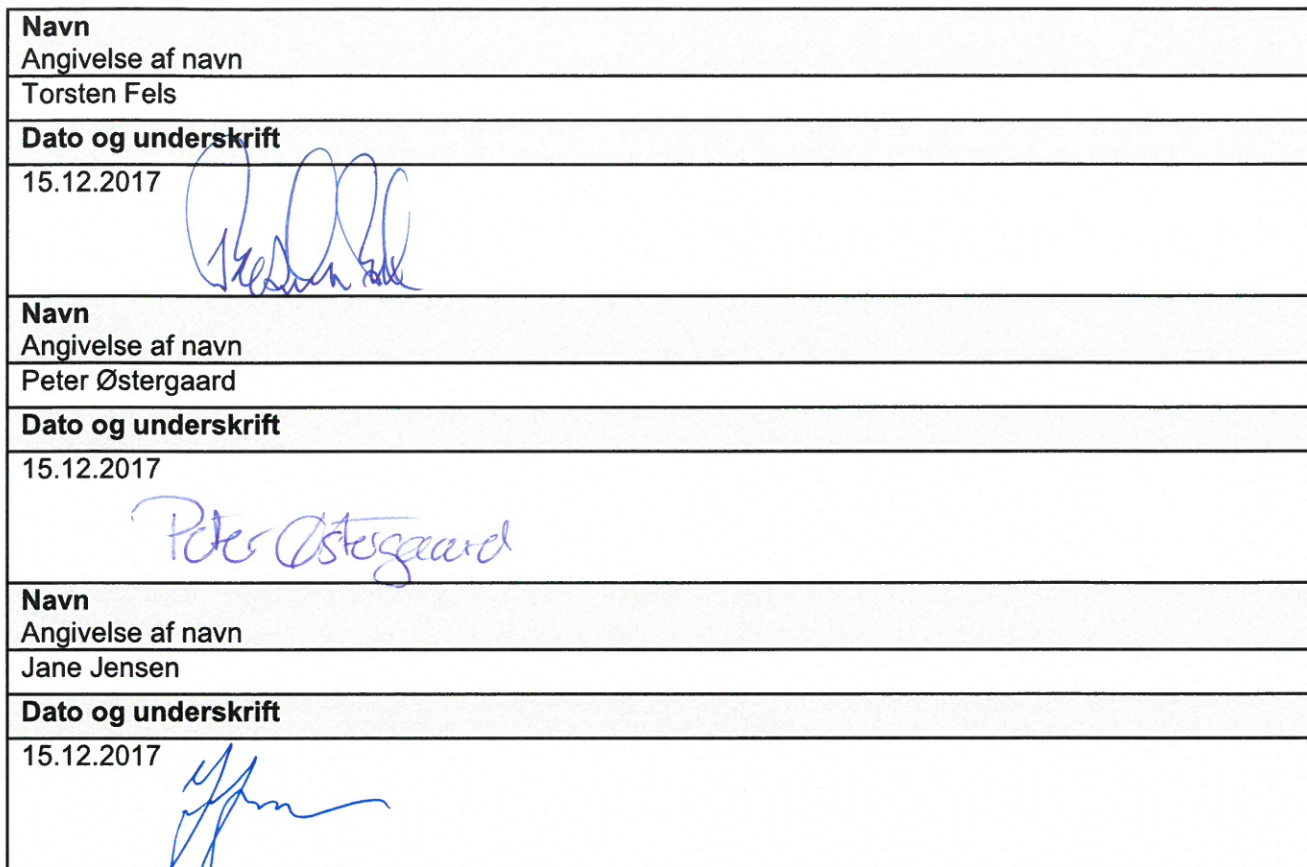 Navn
Angivelse af navn
Torsten Fels
Dato og underskrift
15.12.2017
Navn
Angivelse af navn
Peter Østergaard
Dato og underskrift
15.12.2017
Peter Østergaard
Navn
Angivelse af navn
Jane Jensen
Dato og underskrift
15.12.2017